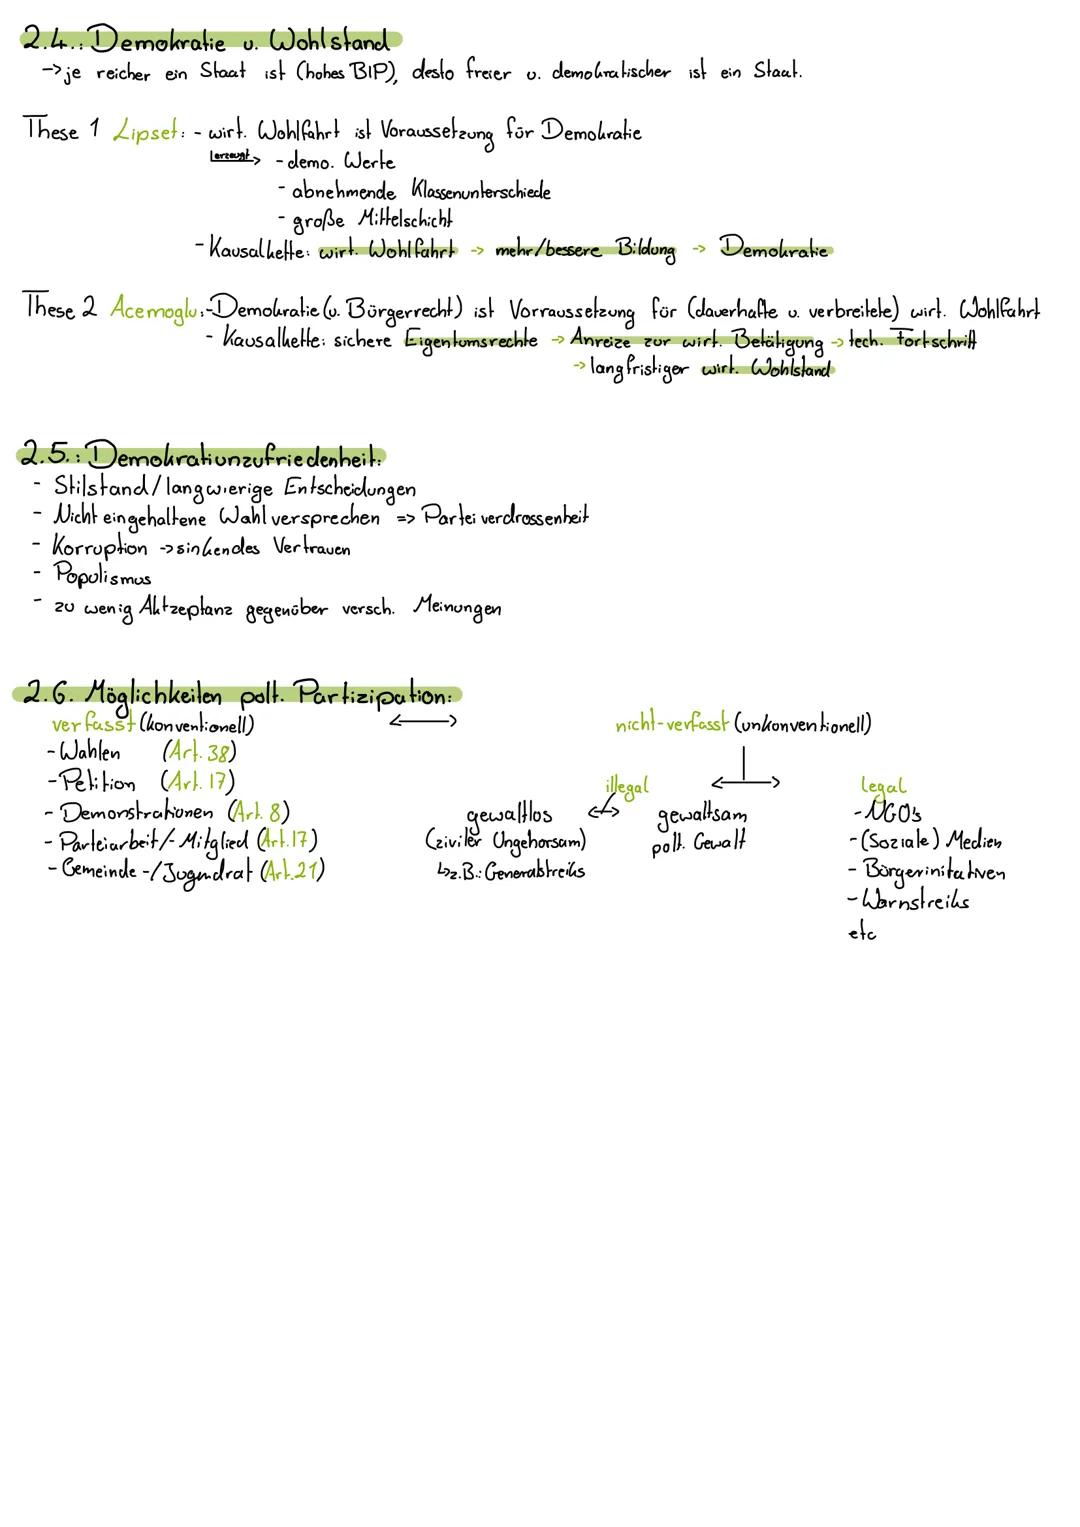 2.4.: Demokratie u. Wohlstand
-> je reicher ein Staat ist (hohes BIP), desto freier u. demokratischer ist ein Staat.
These 1 Lipset: - wirt. Wohlfahrt ist Voraussetzung für Demokratie
erzeugt> - demo. Werte
- abnehmende Klassenunterschiede
- große Mittelschicht
- Kausalkette: wirt. Wohlfahrt -> mehr/bessere Bildung -> Demokratie
These 2 Acemoglu: - Demokratie (u. Bürgerrecht) ist Vorraussetzung für (dauerhafte u. verbreitete) wirt. Wohlfahrt
- Kausalkette: sichere Eigentumsrechte -> Anreize zur wirt. Betätigung -> tech. Fortschritt
-> langfristiger wirt. Wohlstand
2.5.: Demokratiunzufriedenheit:
- Stilstand/langwierige Entscheidungen
- Nicht eingehaltene Wahlversprechen => Parteiverdrossenheit
- Korruption -> sinkendes Vertrauen
- Populismus
- zu wenig Aktzeptanz gegenüber versch. Meinungen
2.6. Möglichkeiten polt. Partizipation:
verfasst (konventionell) <-> nicht-verfasst (unkonventionell)
- Wahlen (Art. 38)
- Petition (Art. 17)
- Demonstrationen (Art. 8)
- Parteiarbeit/-Mitglied (Art. 17)
- Gemeinde-/Jugendrat (Art. 21)
illegal
gewaltlos <-> gewaltsam
(ziviler Ungehorsam) polt. Gewalt
↳z.B.: Generalstreiks
legal
- NGO's
- (Soziale) Medien
- Bürgerinitativen
- Warnstreiks
etc